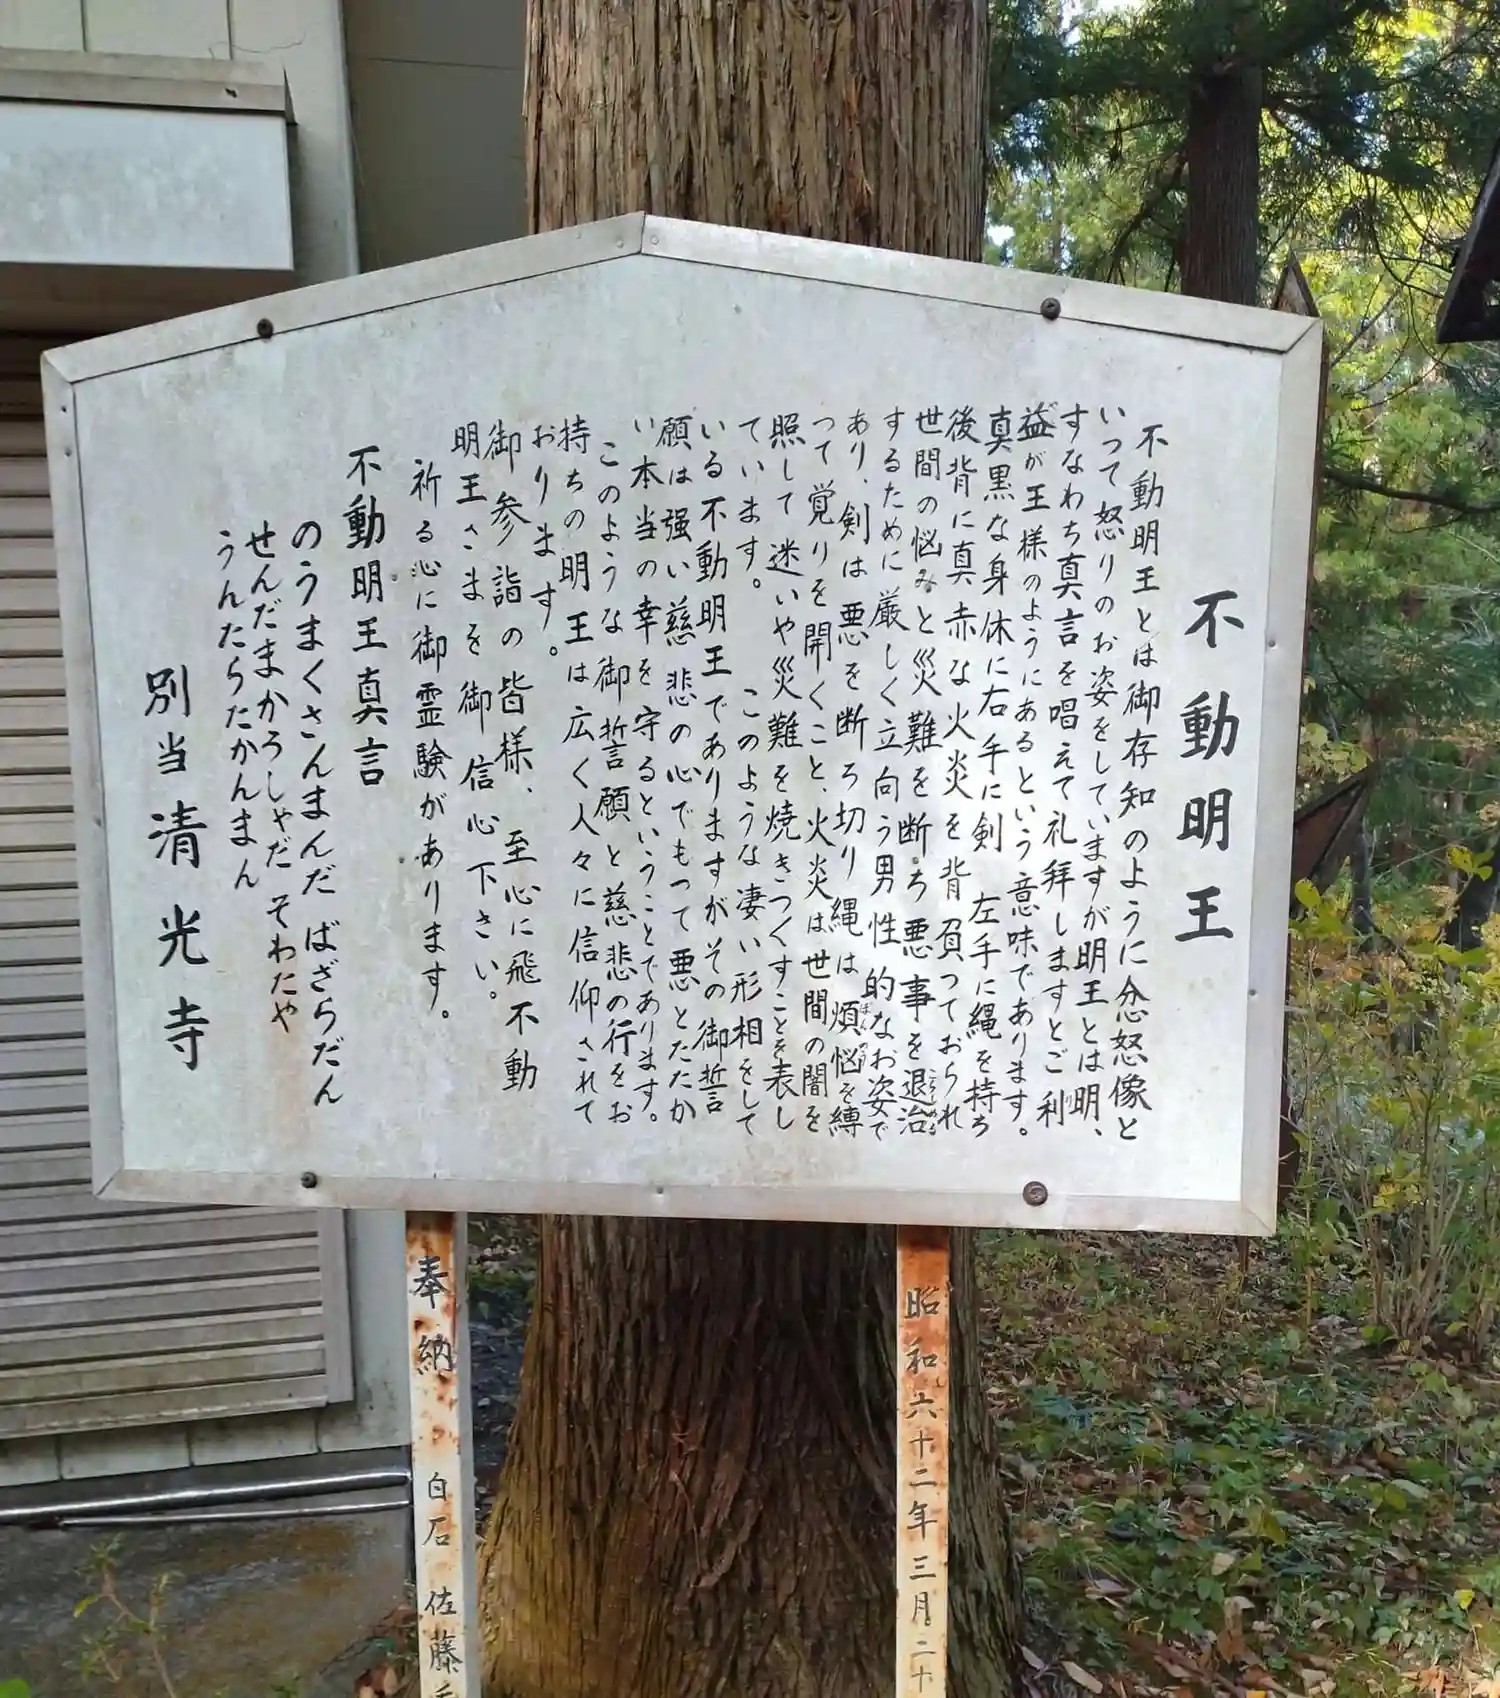 不動明王
不動明王とは御存知のように忿怒像と
いって怒りのお姿をしていますが明王とは明、
すなわち真言を唱えて礼拝しますとご利
益が王様のようにあるという意味であります。
真黒な身体に右手に剣 左手に縄を持ち
後背に真赤な火炎を背負っておられ
世間の悩みと災難を断ち悪事を退治
するために厳しく立向う男性的なお姿で
あり、剣は悪を断ち切り縄は煩悩を縛
って覚りを開くこと、火炎は世間の闇を
照して迷いや災難を焼きつくすことを表し
ています。 このような凄い形相をして
いる不動明王でありますがその御誓
願は強い慈悲の心でもって悪とたたか
い本当の幸を守るということであります。
このような御誓願と慈悲の行をお
持ちの明王は広く人々に信仰されて
おります。
御参詣の皆様、至心に飛不動
明王さまを御信心下さい。
祈る心に御霊験があります。
不動明王真言
のうまくさんまんだ ばざらだん
せんだまかろしゃだ そわたや
うんたらたかんまん
別当清光寺
昭和六十二年三月二十
奉納 白石 佐藤